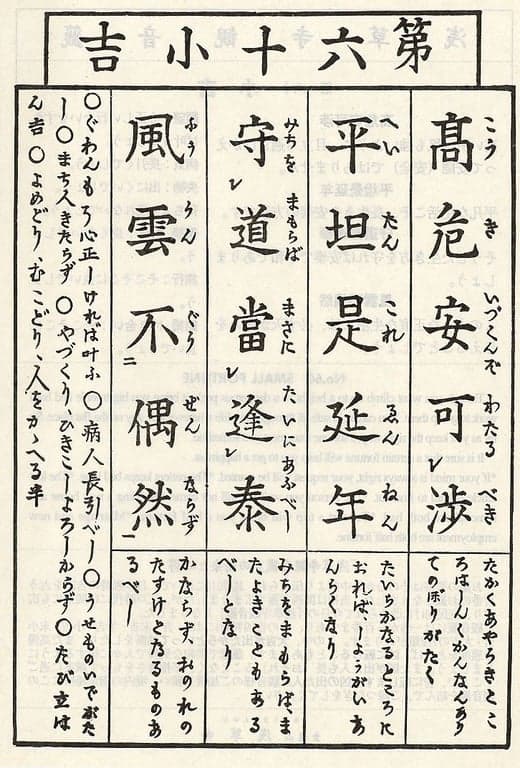 第六十小吉
こうきいづくんでわたるべき
髙危安可涉
レ
たかくあやうきとこ
ろはしんくかんなんあり
てのぼりがたし
へいたんこれゑんねん
平坦是延年
たいらかなるところに
おればしようがいあ
んらくなり
みちをまもらばまさにたいにあふべし
守レ道當レ逢レ泰
みちをまもらば、ま
たよきこともある
べしとなり
ふううんぐうぜんならず
風雲不二偶然一
かならず、おのれの
たすけとなるものあ
るべし
〇ぐわんもう心正しければ叶ふ〇病人長引べし〇うせものいでがた
し〇まち人きたらず〇やづくりひきこしよろしからず〇たび立は
ん吉〇よめどり、むこどり、人をかゝへる半